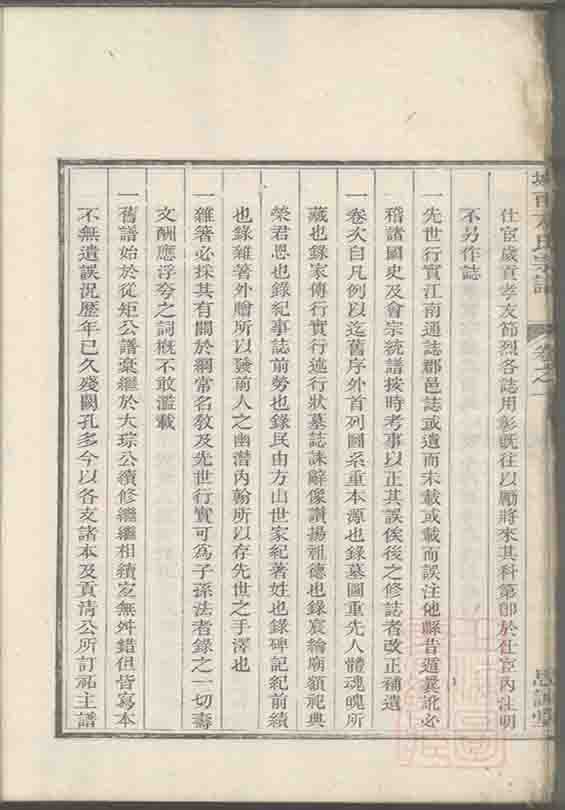 氏宗譜 卷之一
仕宦歲貢孝友節烈各誌用彰既往以勵將來其科第卽於仕宦內注明
不另作誌
一先世行實江南通誌郡邑誌或遺而未載或載而誤注他縣昔遁曩訛必
稽諸國史及會宗統譜按時考事以正其誤俟後之修誌者改正補遺
一卷次自凡例以迄舊序外首列圖系重本源也錄墓圖重先人體魂魄所
藏也錄家傳行實行述行狀墓誌誄辭像讚揚祖德也錄宸綸廟額祀典
榮君恩也錄紀事誌前勞也錄民由方山世家紀著姓也錄碑記紀前績
也錄雜著外贈所以發前人之幽潛內翰所以存先世之手澤也
一雜箸必採其有關於綱常名敎及先世行實可為子孫法者錄之一切壽
文酬應浮夸之詞槪不敢濫載
一舊譜始於從矩公譜稾繼於大琮公續修繼繼相續寔無舛錯但皆寫本
不無遺誤況歷年已久殘闕孔多今以各支諸本及貢清公所訂祏主譜